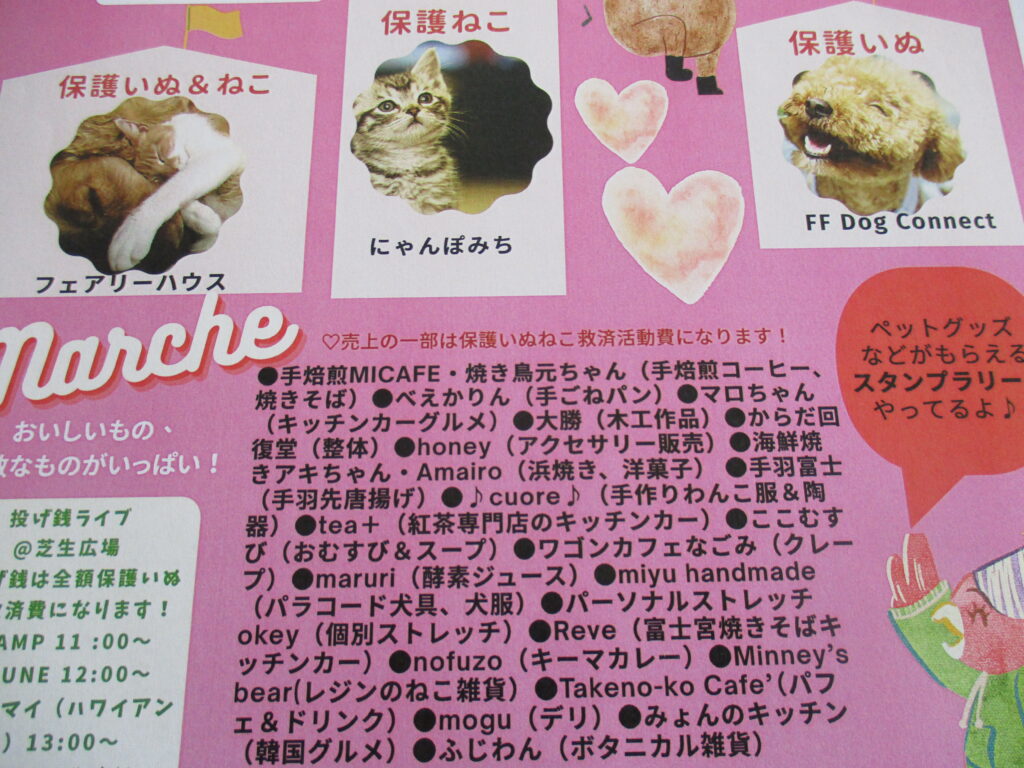 保護いぬ&ねこ
フェアリーハウス
保護ねこ
にゃんぽみち
保護いぬ
FF Dog Connect
Marche
おいしいもの、
敵なものがいっぱい！
♡売上の一部は保護いぬねこ救済活動費になります！
●手焙煎MICAFE・焼き鳥元ちゃん（手焙煎コーヒー、
焼きそば）●べえかりん（手ごねパン）●マロちゃん
（キッチンカーグルメ）●大勝（木工作品）●からだ回
復堂（整体）●honey（アクセサリー販売）●海鮮焼
きアキちゃん・Amairo（浜焼き、洋菓子）●手羽富士
（手羽先唐揚げ）●♪cuore♪（手作りわんこ服＆陶
器）●tea＋（紅茶専門店のキッチンカー）●ここむす
び（おむすび＆スープ）●ワゴンカフェなごみ（クレー
プ）●maruri（酵素ジュース）●miyu handmade
（パラコード犬具、犬服）●パーソナルストレッチ
okey（個別ストレッチ）●Reve（富士宮焼きそばキ
ッチンカー）●nofuzo（キーマカレー）●Minney's
bear(レジンのねこ雑貨）●Takeno-ko Cafe'（パフ
ェ＆ドリンク）●mogu（デリ）●みょんのキッチン
（韓国グルメ）●ふじわん（ボタニカル雑貨）
ペットグッズ
などがもらえる
スタンプラリー
やってるよ♪
投げ銭ライブ
@芝生広場
げ銭は全額保護いぬ
済費になります！
AMP 11 :00～
UNE 12:00～
マイ（ハワイアン
）13:00～